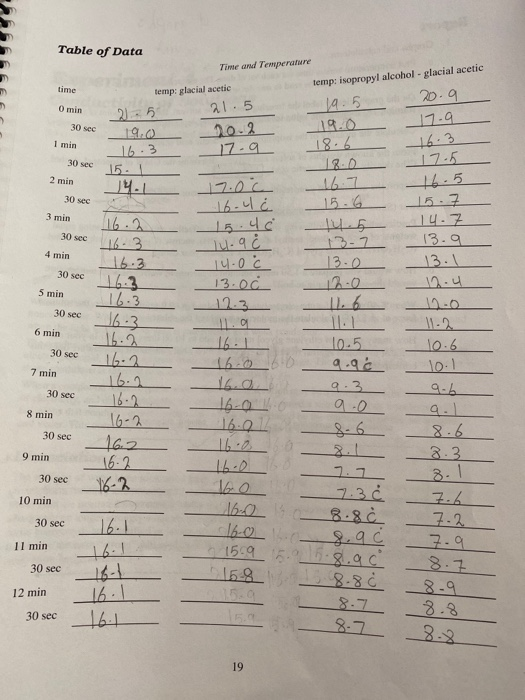 Table of Data
Time and Temperature
time temp: glacial acetic temp: isopropyl alcohol - glacial acetic
0 min 21.5 21.5 19.5 20.9
30 sec 19.0 20.2 19.0 17.9
1 min 16.3 17.9 18.6 16.3
30 sec 15.1 18.0 17.5
2 min 14.1 17.0 c 16.7 16.5
30 sec 16.4 c 15.6 15.7
3 min 16.2 15.4 c 14.5 14.7
30 sec 16.3 14.9 c 13.7 13.9
4 min 16.3 14.0 c 13.0 13.1
30 sec 16.3 13.0 c 12.0 12.4
5 min 16.3 12.3 11.6 12.0
30 sec 16.3 11.9 11.1 11.2
6 min 16.2 16.1 10.5 10.6
30 sec 16.2 16.0 9.9 c 10.1
7 min 16.2 16.0 9.3 9.6
30 sec 16.2 16.0 9.0 9.1
8 min 16.2 16.0 8.6 8.6
30 sec 16.2 16.0 8.1 8.3
9 min 16.2 16.0 7.7 8.1
30 sec 16.2 16.0 7.3 c 7.6
10 min 16.0 8.8 c 7.2
30 sec 16.1 16.0 8.9 c 7.9
11 min 16.1 15.9 8.9 c 8.7
30 sec 16.1 15.8 8.8 c 8.9
12 min 16.1 8.7 8.8
30 sec 16.1 8.7 8.8
19